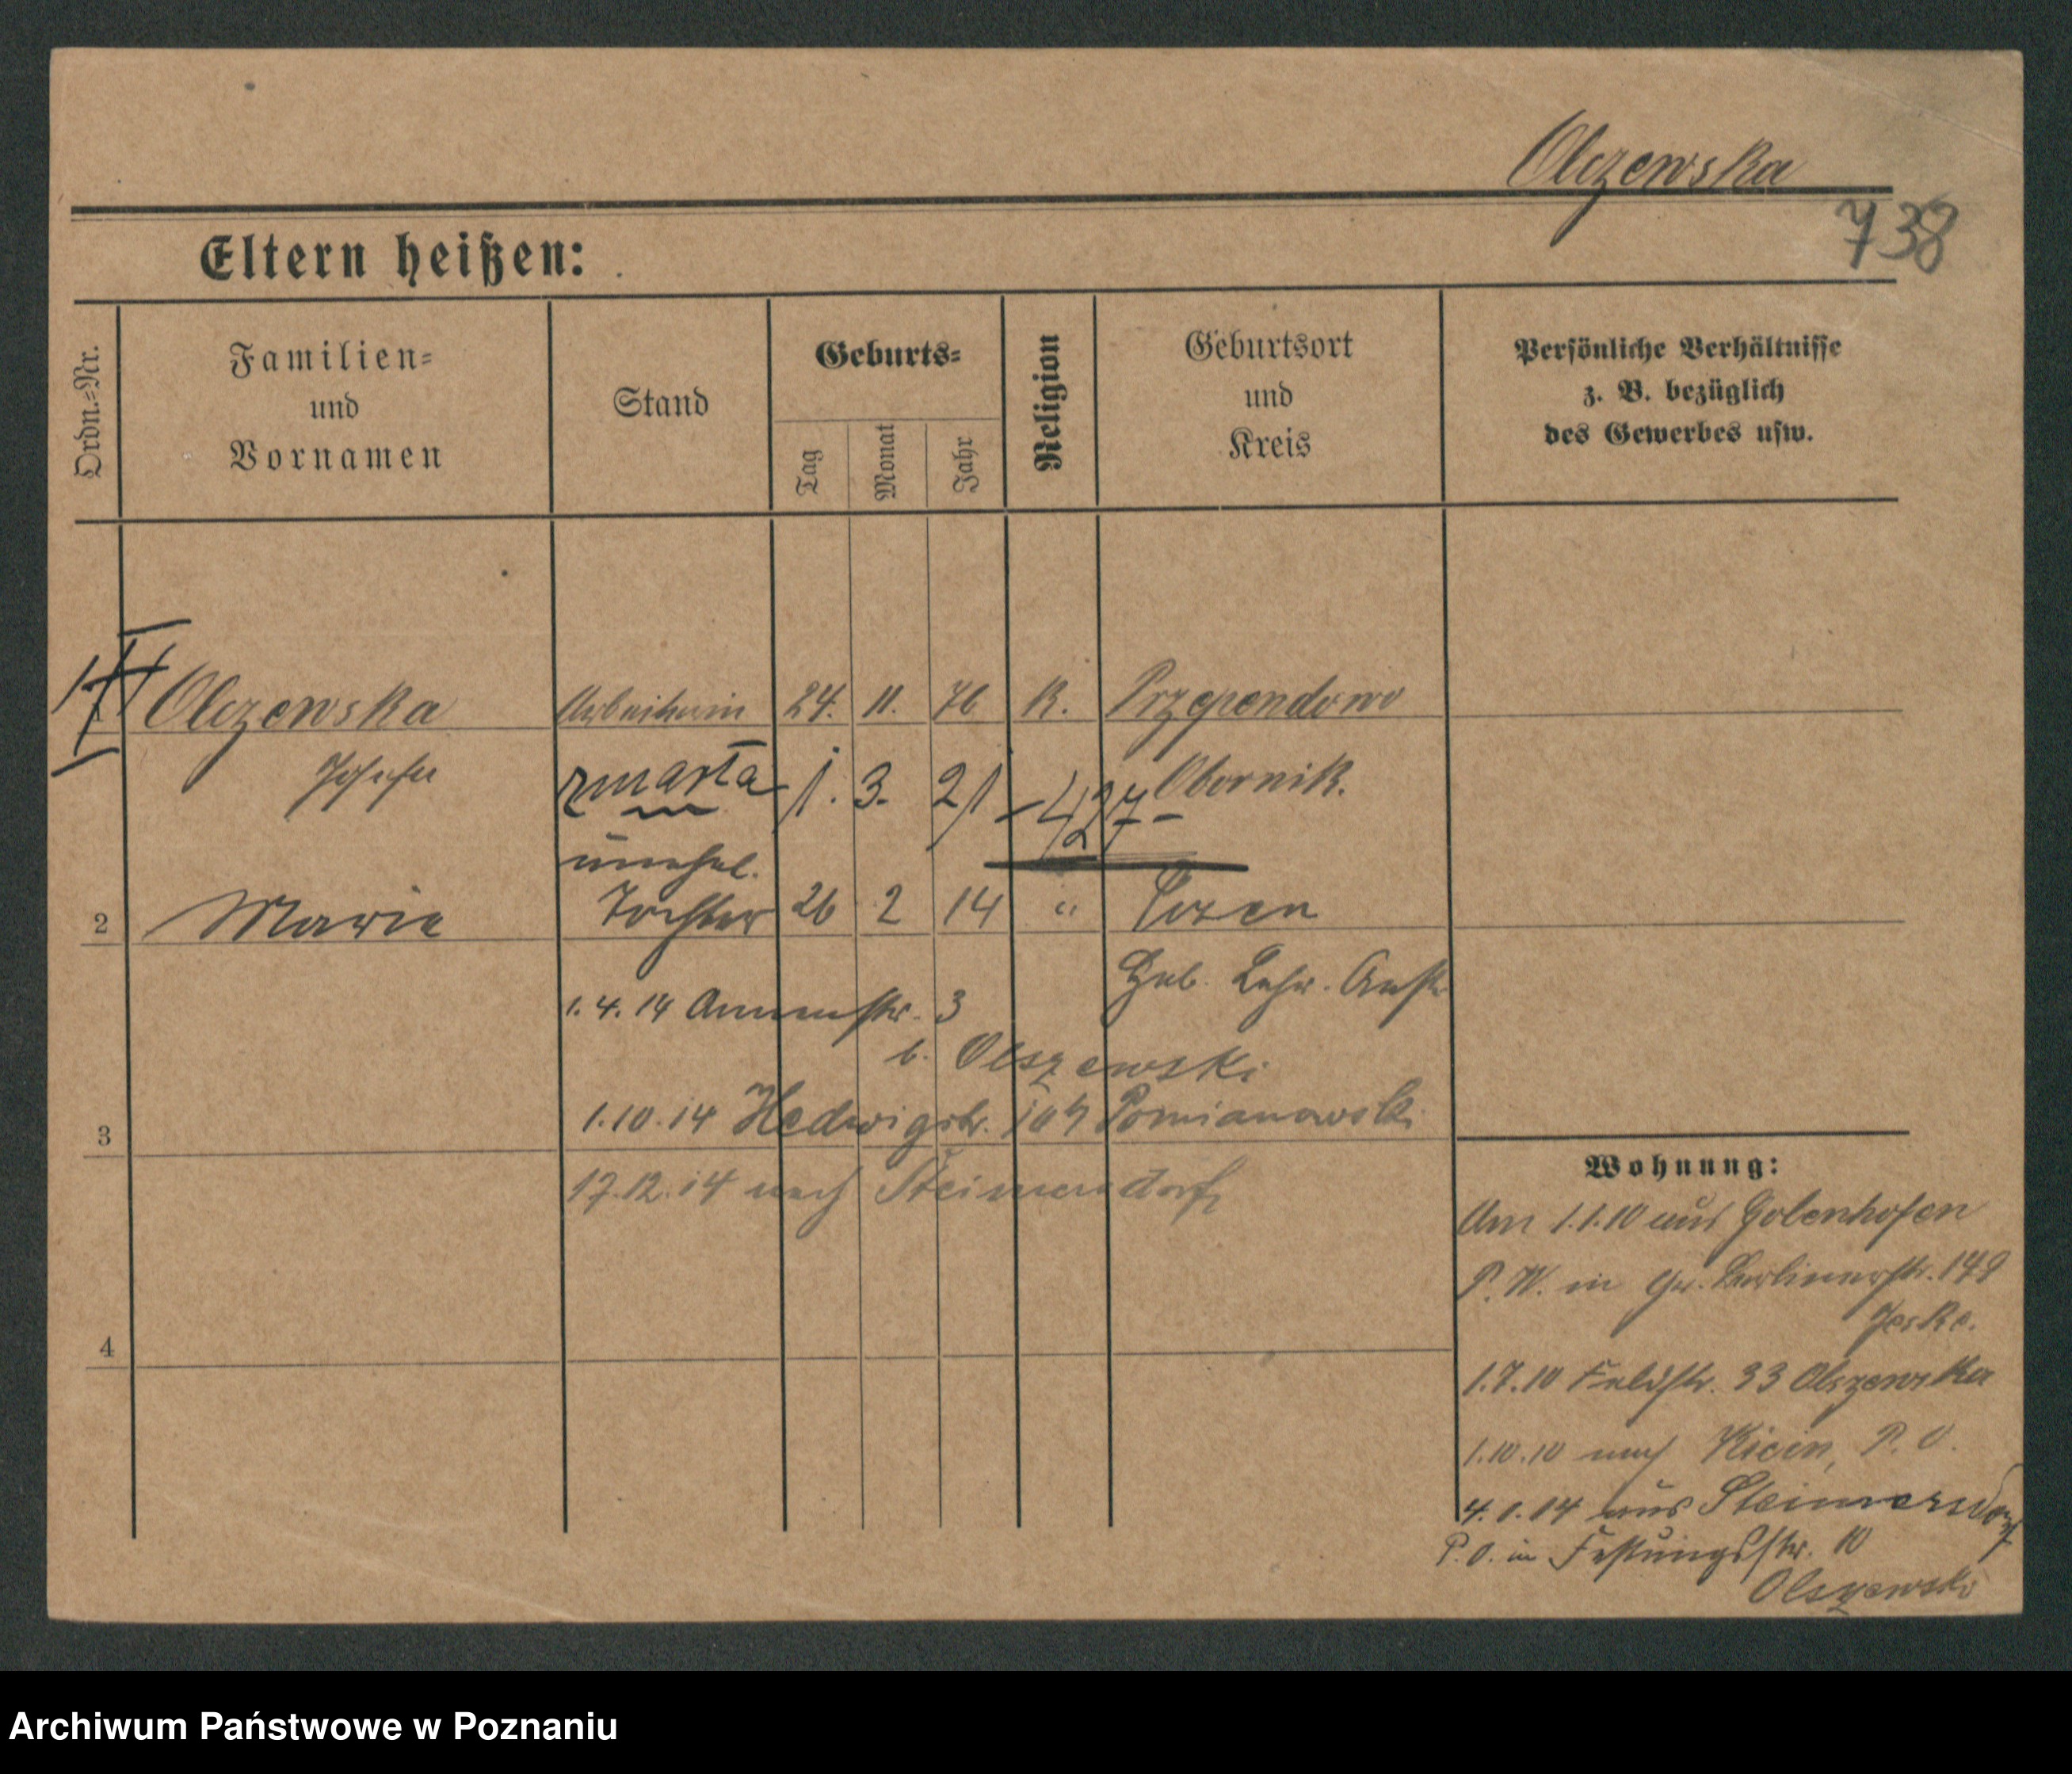 Olczewska
738
Eltern heißen:
Ordn.=Nr.
Familien=
und
Vornamen
Stand
Geburts=
Tag
Monat
Jahr
Religion
Geburtsort
und
Kreis
Persönliche Verhältnisse
z. B. bezüglich
des Gewerbes usw.
Olczewska Arbeiterin 24. 11. 76 K. Przependowo
Josefa zmarła 1. 3. 21 -427- Obornik.
unehel.
2 Marie Tochter 26 2 14 " Posen
Heb. Lehr. Anst.
1. 4. 14 Annenstr. 3
b. Olszewski
1.10.14 Hedwigstr. Pomianowsk
3
17.12.14 nach Steimersdorf
4
Wohnung:
Am 1.1.10 aus Golenhofen
P. W. in Gr. Berlinerstr. 149
Jeske.
1.7.10 Feldstr. 33 Olszewska
1.10.10 nach Kicin, P. O.
4. 1. 14 aus Steimersdorf
P. O. in Festungsstr. 10
Olszewski
Archiwum Państwowe w Poznaniu